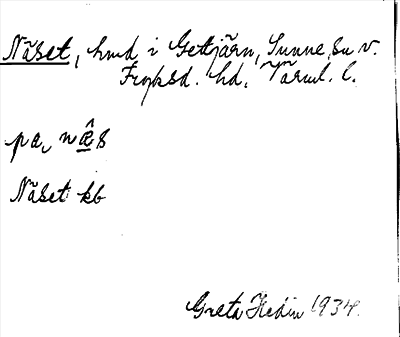 Näset, hmd i Gettjärn, Sunne, su v.
Fryksd. hd, Värml. l.
pa, næ̂s
Näset kb
Greta Hedin 1934.